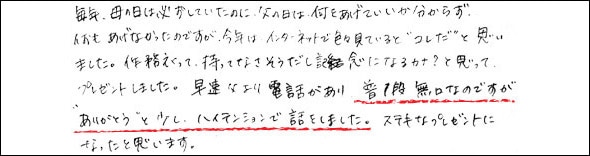 毎年、母の日は必ずしていたのに、父の日は何をあげていいか分からず、
何もあげなかったのですが、今年はインターネットで色々見ていると"コレだ"と思い
ました。作務えって、持ってなさそうだし記念になるカナ?と思って、
プレゼントしました。早速父より電話があり 普段無口なのですが
"ありがとう"と少し、ハイテンションで話をしました。ステキなプレゼントに
なったと思います。